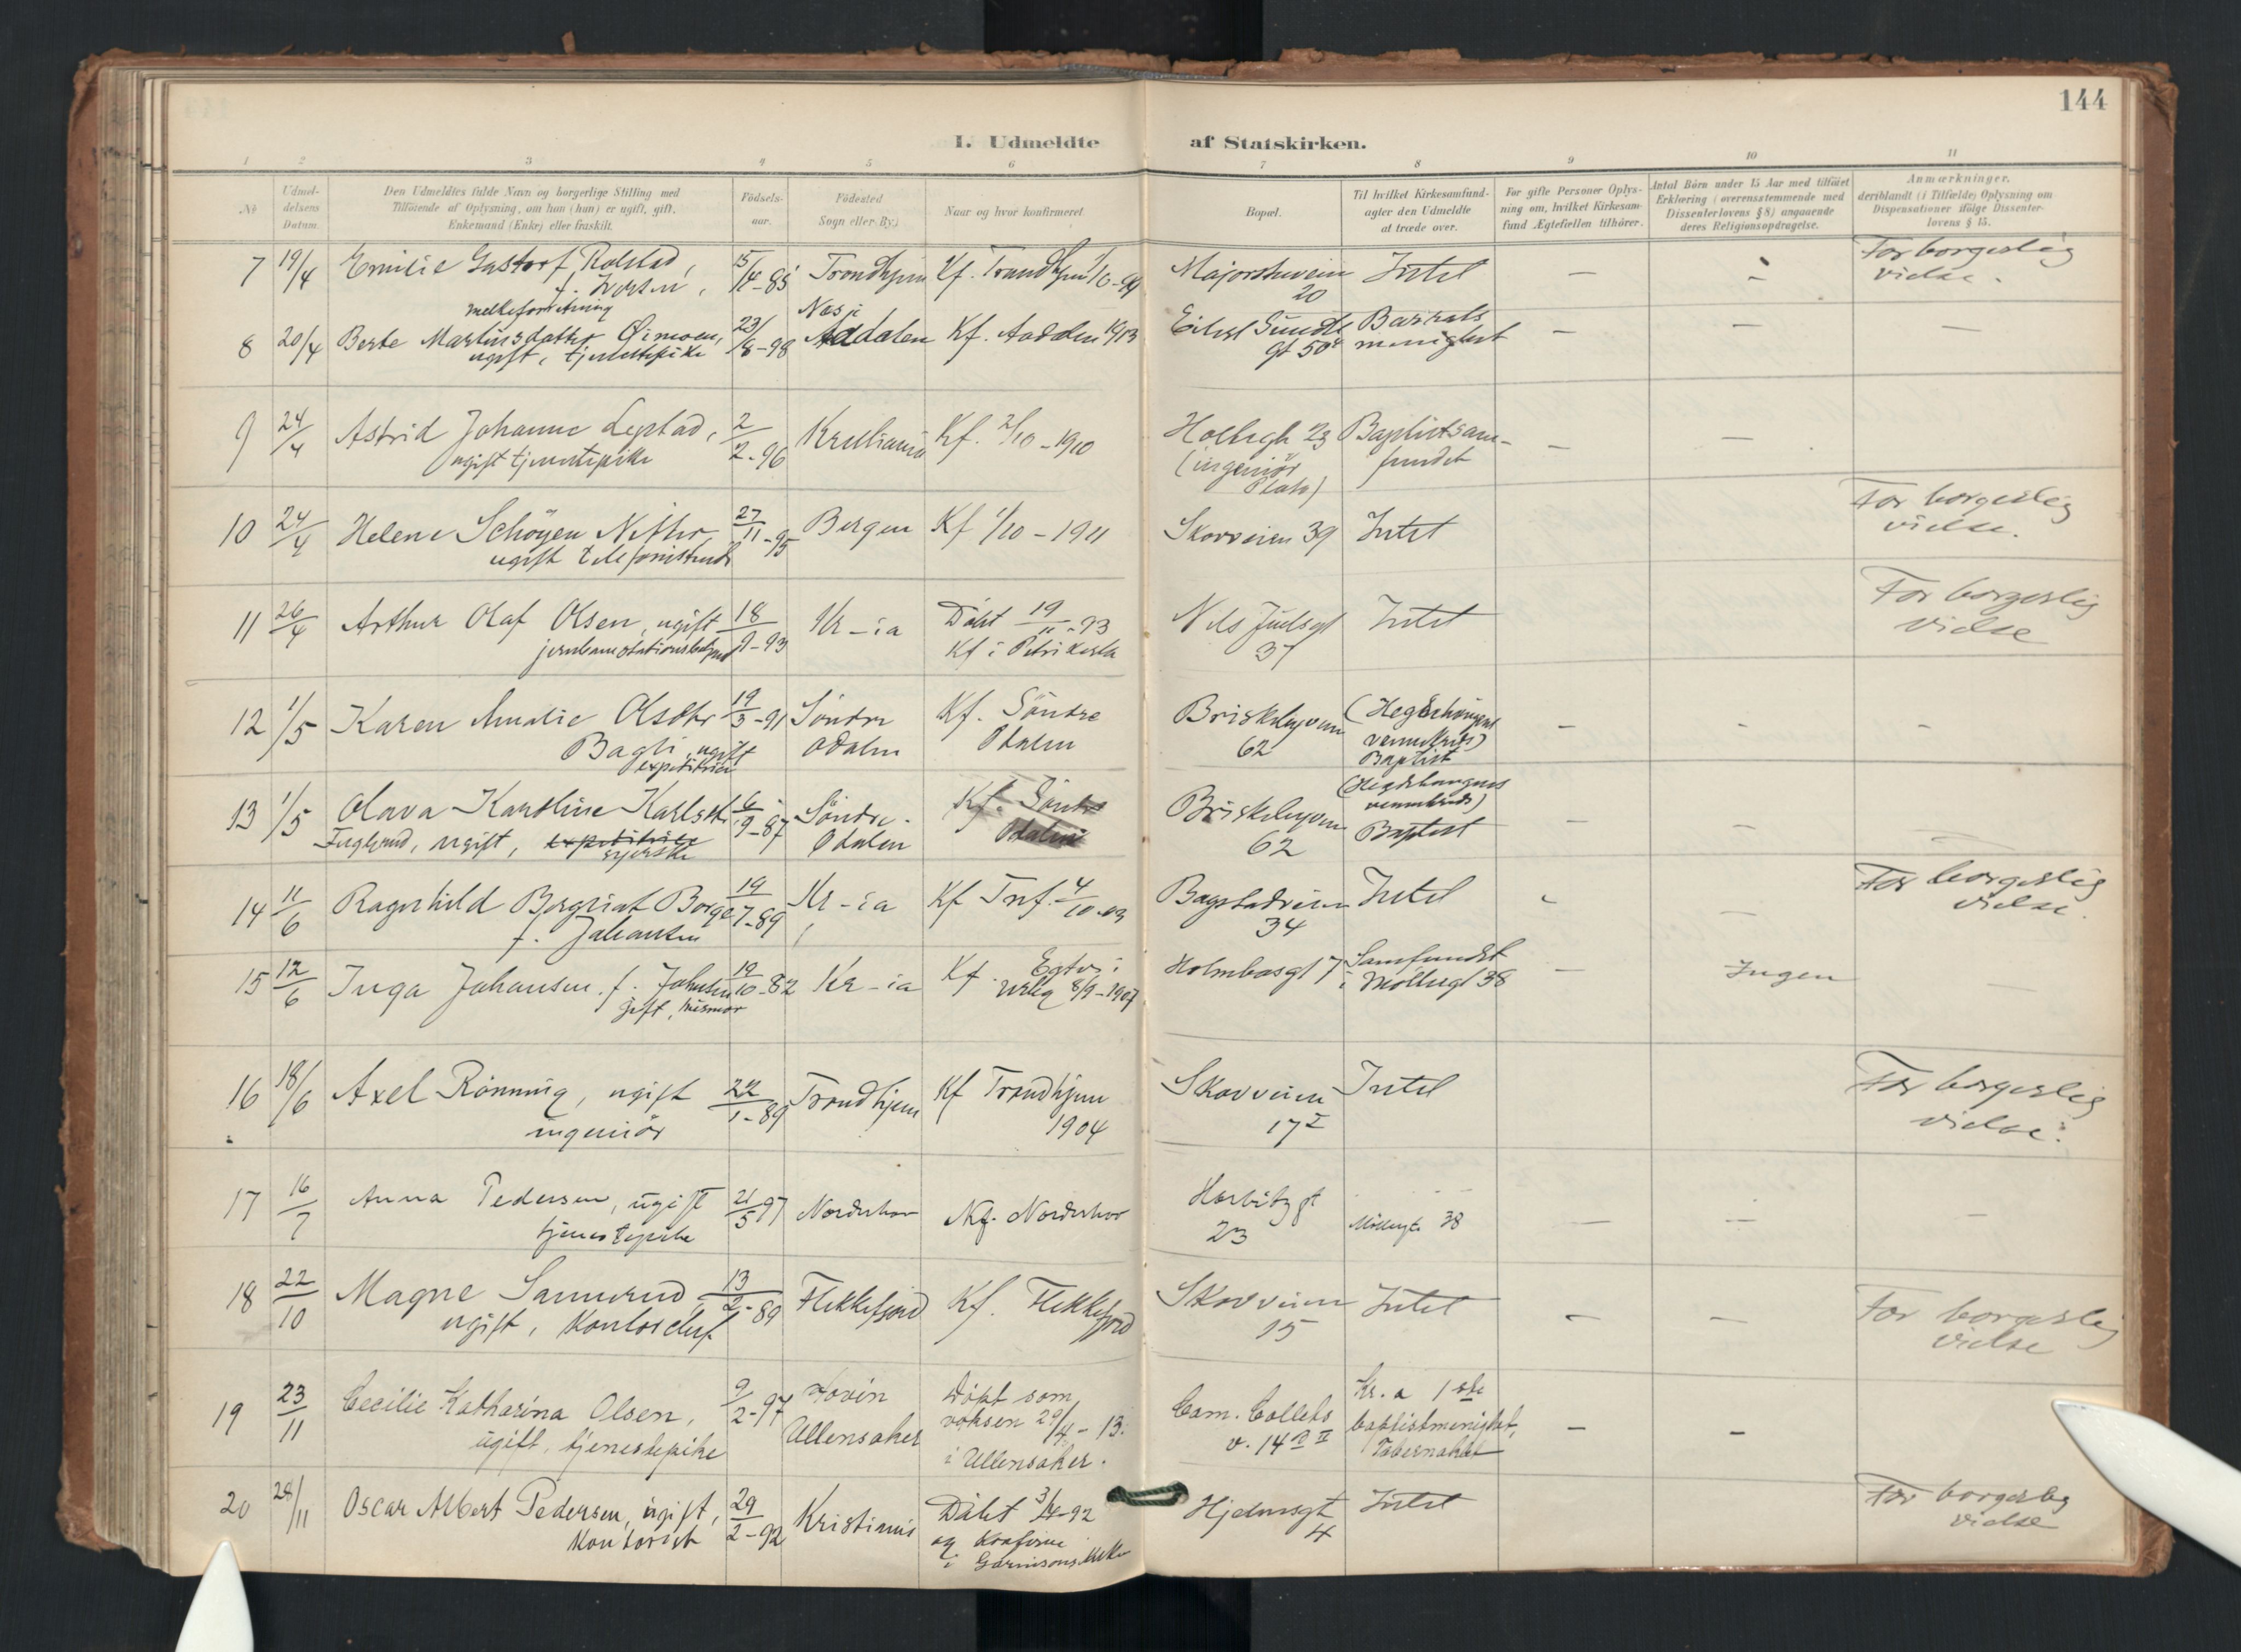 144
I. Udmeldte af Statskirken.
1 2 3 4 5 6 7 8 9 10 11
No
Udmel-
delsens
Datum.
Den Udmeldtes fulde Navn og borgerlige Stilling med
Tilföiende af Oplysning, om han (hun) er ugift, gift,
Enkemand (Enke) eller fraskilt.
Födsels-
aar.
Födested
Sogn eller By.)
Naar og hvor konfirmeret.
Bopæl.
Til hvilket Kirkesamfund-
agter den Udmeldte
at træde over.
For gifte Personer Oplys-
ning om, hvilket Kirkesam-
fund Ægtefællen tilhörer.
Antal Börn under 15 Aar med tilföiet
Erklæring (overensstemmende med
Dissenterlovens § 8) angaaende
deres Religionsopdragelse.
Anmærkninger.
deriblandt (i Tilfælde) Oplysning om
Dispensationer ifölge Dissenter-
lovens § 15.
7 19/4 Emilie Rolstad, 15/4-85 Trondhjem Kf. Trondhjem Majorstuvein Intet — - For borgerlig
f. Iversen, 20 vielse.
melkeforretning
8 20/4 Berte Martinsdatter 23/8-98 Næs i Aadalen Kf. Aadalen 1913 Eilert Sundts — — —
ugift, tjenestepike gt 50 menighet
9 24/4 Astrid Johanne 2/2-96 Kristiania Kf. 2/10-1910 Holbgt 23 Baptistsam- — —
ugift tjenestepike (ingeniör fundet
10 24/4 Helene Schöyen 27/11-95 Bergen Kf 1/10-1911 Skovveien 39 Intet For borgerlig
ugift telefonistinde vielse.
11 26/4 Arthur Olaf Olsen, ugift 18/9-93 Kr-ia Döbt 19/11-93 Nils Juelsgt Intet For borgerlig
Kf i Petri kirke 37 vielse
12 1/5 Karen Amalie Olsdtr 19/3-91 Söndre Kf. Söndre Briskebyveien - - -
Bagli, ugift Odalen Odalen 62 Baptist
expeditrice
13 1/5 Olava Karoline Karlsdtr 6/9-87 Söndre Kf. Söndre Briskebyveien - - -
ugift, expeditrice Odalen Odalen 62 Baptist
syerske
14 11/6 Ragnhild Borge 19/7-89 Kr-ia Kf Tref. 4/10-03 Bogstadveien Intet - — For borgerlig
f. Johansen 34 vielse.
15 12/6 Inga Johansen f. Johnsen 19/10-82 Kr-ia Kf. 8/9-1907 7 Samfundet — Ingen —
gift, husmor i Möllergt 38
16 18/6 Axel Rönning, ugift 22/1-89 Trondhjem Kf Trondhjem Skovveien Intet For borgerlig
ingeniör 1904 17 I vielse.
17 16/7 Anna Pedersen, ugift 21/5 97 Norderhov Kf. Norderhov — — —
tjenestepike 23 Möllergt. 38
18 22/10 Magne Sannerud, 13/2-89 Flekkefjord Kf. Flekkefjord Skovveien Intet - — For borgerlig
ugift, Kontorchef 15 vielse
19 23/11 Cecilie Katharina Olsen, 9/2-97 Hovin Döbt som Cam. Colletts Kr.a 1ste - -
ugift, tjenestepike Ullensaker voksen 29/4-13. v. 14 II baptistmenighet,
i Ullensaker. Tabernaklet
20 28/11 Oscar Albert Pedersen, ugift, 29/2-92 Kristiania Döbt 3/4-92 Hjelmsgt Intet For borgerlig
Kontorist og konfirm. 4 vielse
i Garnisonskirken